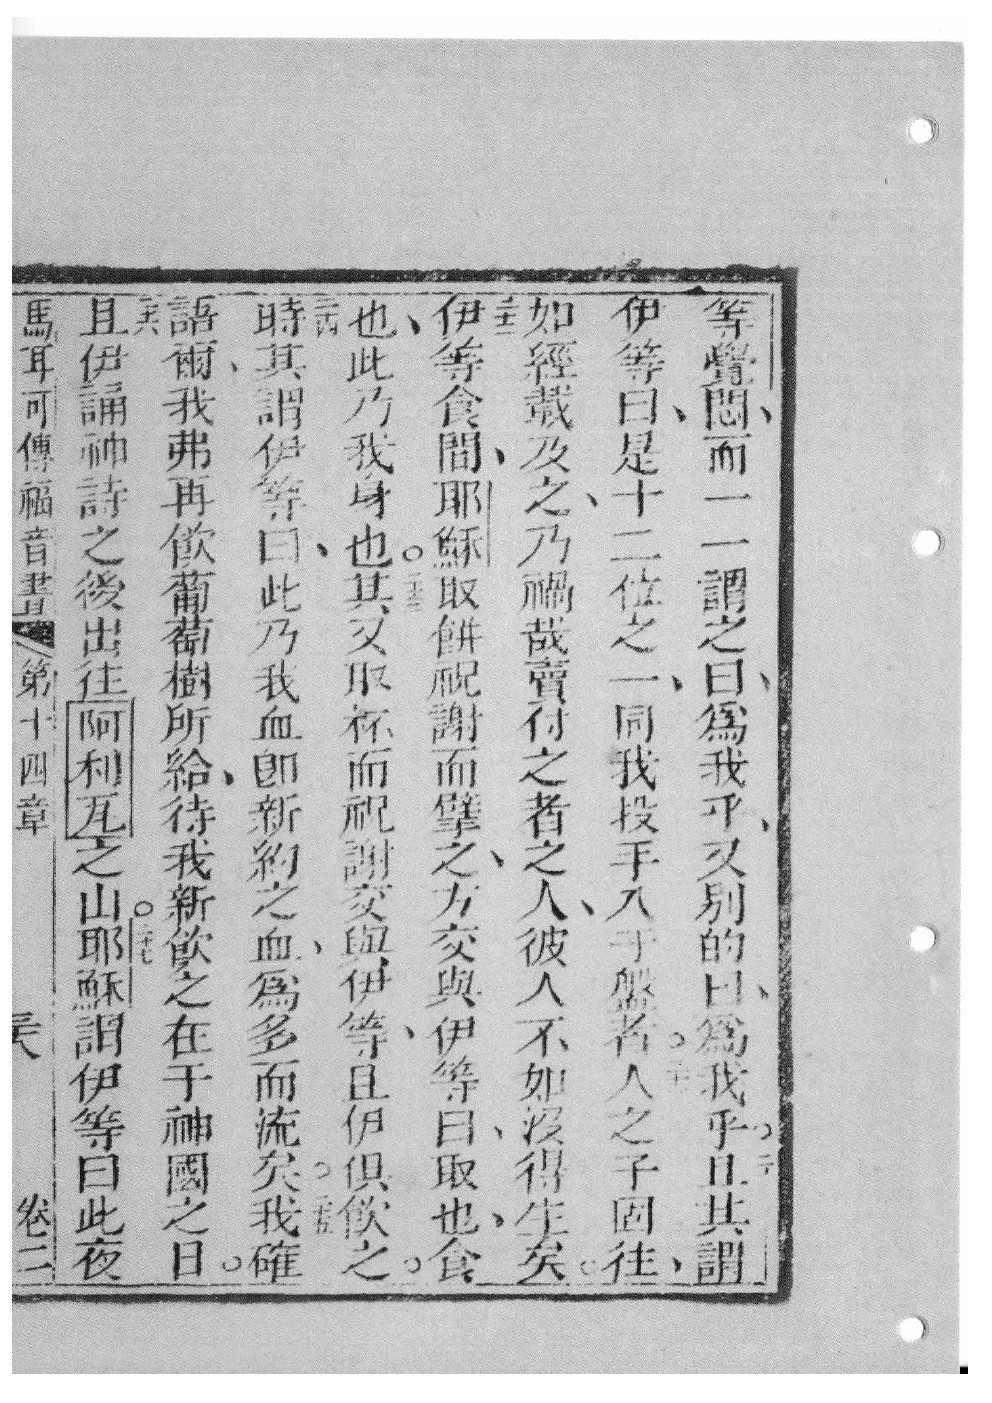 等覺悶、而一一謂之曰、爲我乎、又別的曰、爲我乎。二十且其謂
伊等曰、是十二位之一、同我投手入于盤者。二十一人之子固往、
如經載及之、乃禍哉賣付之者之人、彼人不如沒得生矣。
二十二伊等食間、耶穌取餅祝謝而擘之、方交與伊等曰、取也、食
也、此乃我身也。二十三其又取杯而祝謝交與伊等、且伊俱飲之。
二十四時其謂伊等曰、此乃我血卽新約之血、爲多而流矣。二十五我確
語爾、我弗再飲葡萄樹所給、待我新飲之在于神國之日。
二十六且伊誦神詩之後出往阿利瓦之山。二十七耶穌謂伊等曰此夜
馬耳可傳福音書 第十四章 卷二